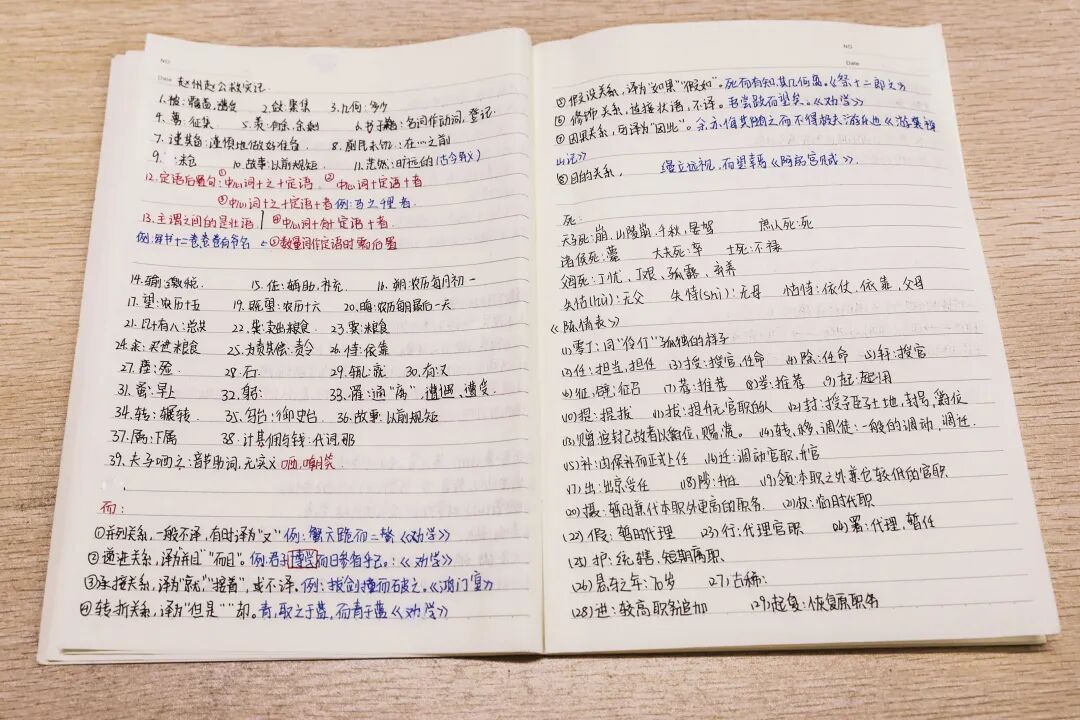 NO
Date 赵州赵公救灾记
1.被:覆盖,遭受 2.敛:聚集 3.几何:多少
4.募:征集 5.羡:富余,余剩 6.书于籍:名词作动词,登记.
7.谨其备:谨慎地做好准备 8.前民未饥:在…之前
9. :来 10.故事:以前规矩 11.茫然:时远的(古今异义)
12.定语后置句:①中心词+之+定语 ②中心词+定语+者
③中心词+之+定语+者 例:马之千里者
13.主谓之间的是状语 ④中心词+而+定语+者.
例:军书十二卷,卷卷有爷名 ←⑤数量词作定语时需后置
14.输:缴税. 15.佐:辅助,补充 16.朔:农历每月初一
17.望:农历十五 19.既望:农历十六 20.晦:农历每月最后一天
21.凡十有八:总共 22.粜:卖出粮食 23.粟:粮食
24.籴:买进粮食 25.为责其偿:责令 26.恃:依靠
27.瘗:死 28.石: 29.辄:就 30.有:又
31.蚤:早上 32.躬: 33.罹:通"离",遭遇,遭受.
34.转:辗转. 35.台:御史台. 36.故事:以前规矩
37.属:下属 38.计其佣与钱:代词,那
39.夫子哂之:音节助词,无实义 哂,嘲笑.
而:
①并列关系,一般不译,有时译为"又"例:蟹六跪而二螯《劝学》
②递进关系,译为"并且""而且".例:君子博学而日参省乎己.:《劝学》
③承接关系,译为"就""接着",或不译.例:拔剑撞而破之.《鸿门宴》
④转折关系,译为"但是""却。青,取之于蓝,而青于蓝《劝学》
NO
Date
⑤假设关系,译为"如果""假如".死而有知,其几何离.《祭十二郎文》
⑥修饰关系,连接状语,不译.吾尝跂而望矣.《劝学》
⑦因果关系,可译为"因此". 余亦悔其随之而不得极夫游乐也《游褒禅
山记》
⑧目的关系, 缦立远视,而望幸焉《阿房宫赋》.
死:
天子死:崩,山陵崩,千秋,晏驾 庶人死:死
诸侯死:薨 大夫死:卒 士死:不禄
父母死:丁忧,丁艰,孤露,弃养
失怙(hù):无父 失恃(shì):无母 怙恃:依仗,依靠,父母
《陈情表》
(1)零丁:同"伶仃"孤独的样子
(2)任:担当,担任 (3)授:授官,任命 (4)除:任命 (5)拜:授官
(6)征,辟:征召 (7)荐:推荐 (8)举:推荐 (9)起:起用
(10)提:提拔 (11)拔:提升无官职的人 (12)封:授予臣子土地,封号,爵位
(13)赠:追封已故者以爵位,赐谥。 (14)转,移,调,徙:一般的调动,调迁.
(15)补:由候补而正式上任 (16)迁:调动官职,升官
(17)出:出京受任 (18)陟:升任 (19)领:本职之外兼它较低的官职
(20)摄:暂时兼代本职外更高的职务. (21)权:临时代职
(22)假:暂时代理 (23)行:代理官职 (24)署:代理,暂任
(25)护:统辖,短期离职
(26)悬车之年:70岁 (27)古稀:
(28)进:较高职务追加 (29)起复:恢复原职务